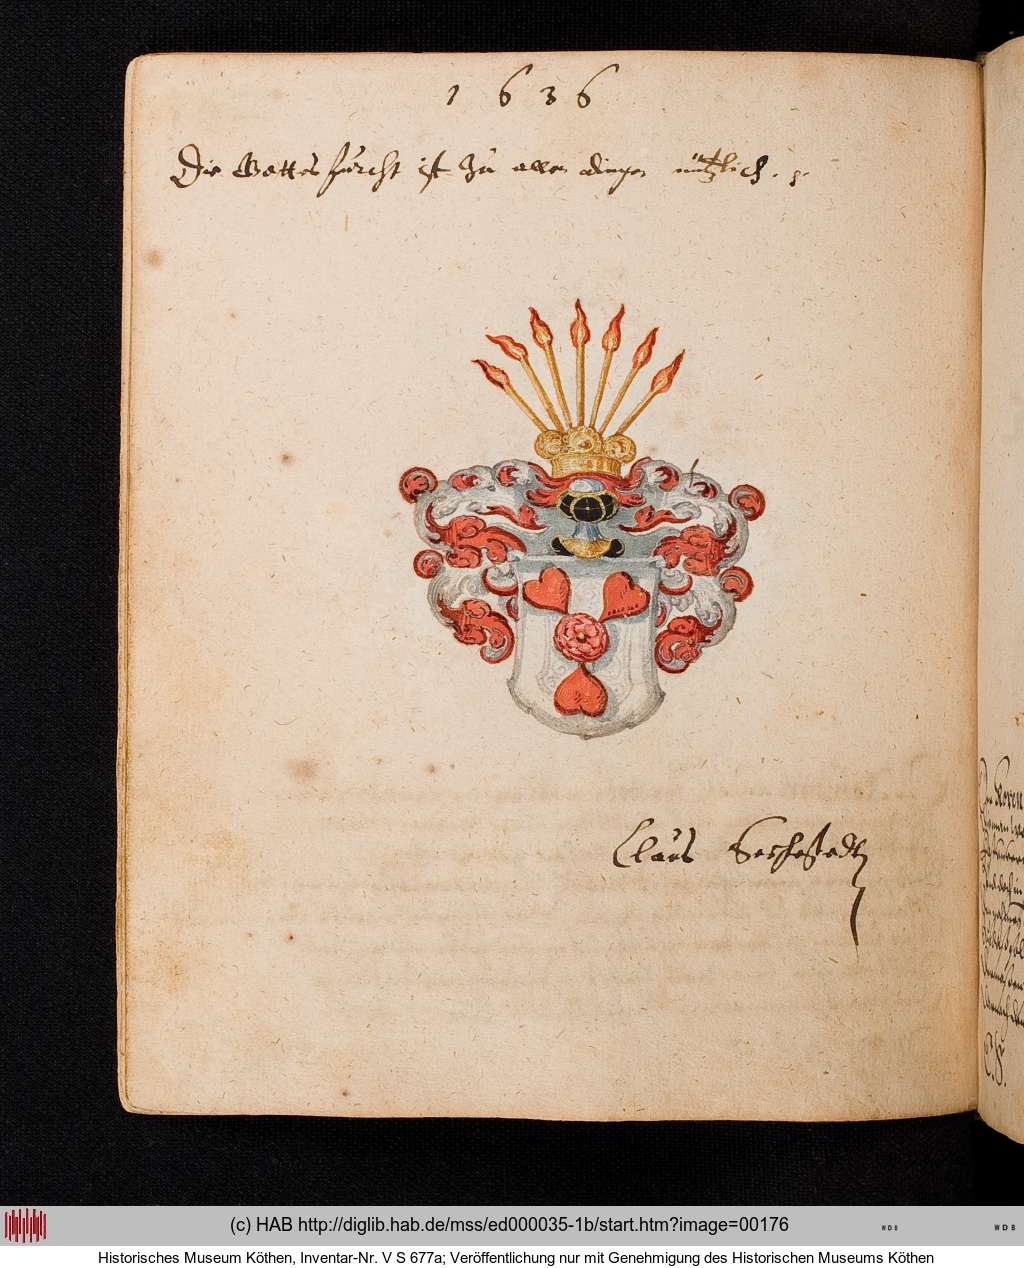 1636
Die Gottes furcht ist zu allen dingen nützlich.
Claus Sechestedt
Koren
E. F.
(c) HAB http://diglib.hab.de/mss/ed000035-1b/start.htm?image=00176
WDB
WDB
Historisches Museum Köthen, Inventar-Nr. V S 677a; Veröffentlichung nur mit Genehmigung des Historischen Museums Köthen